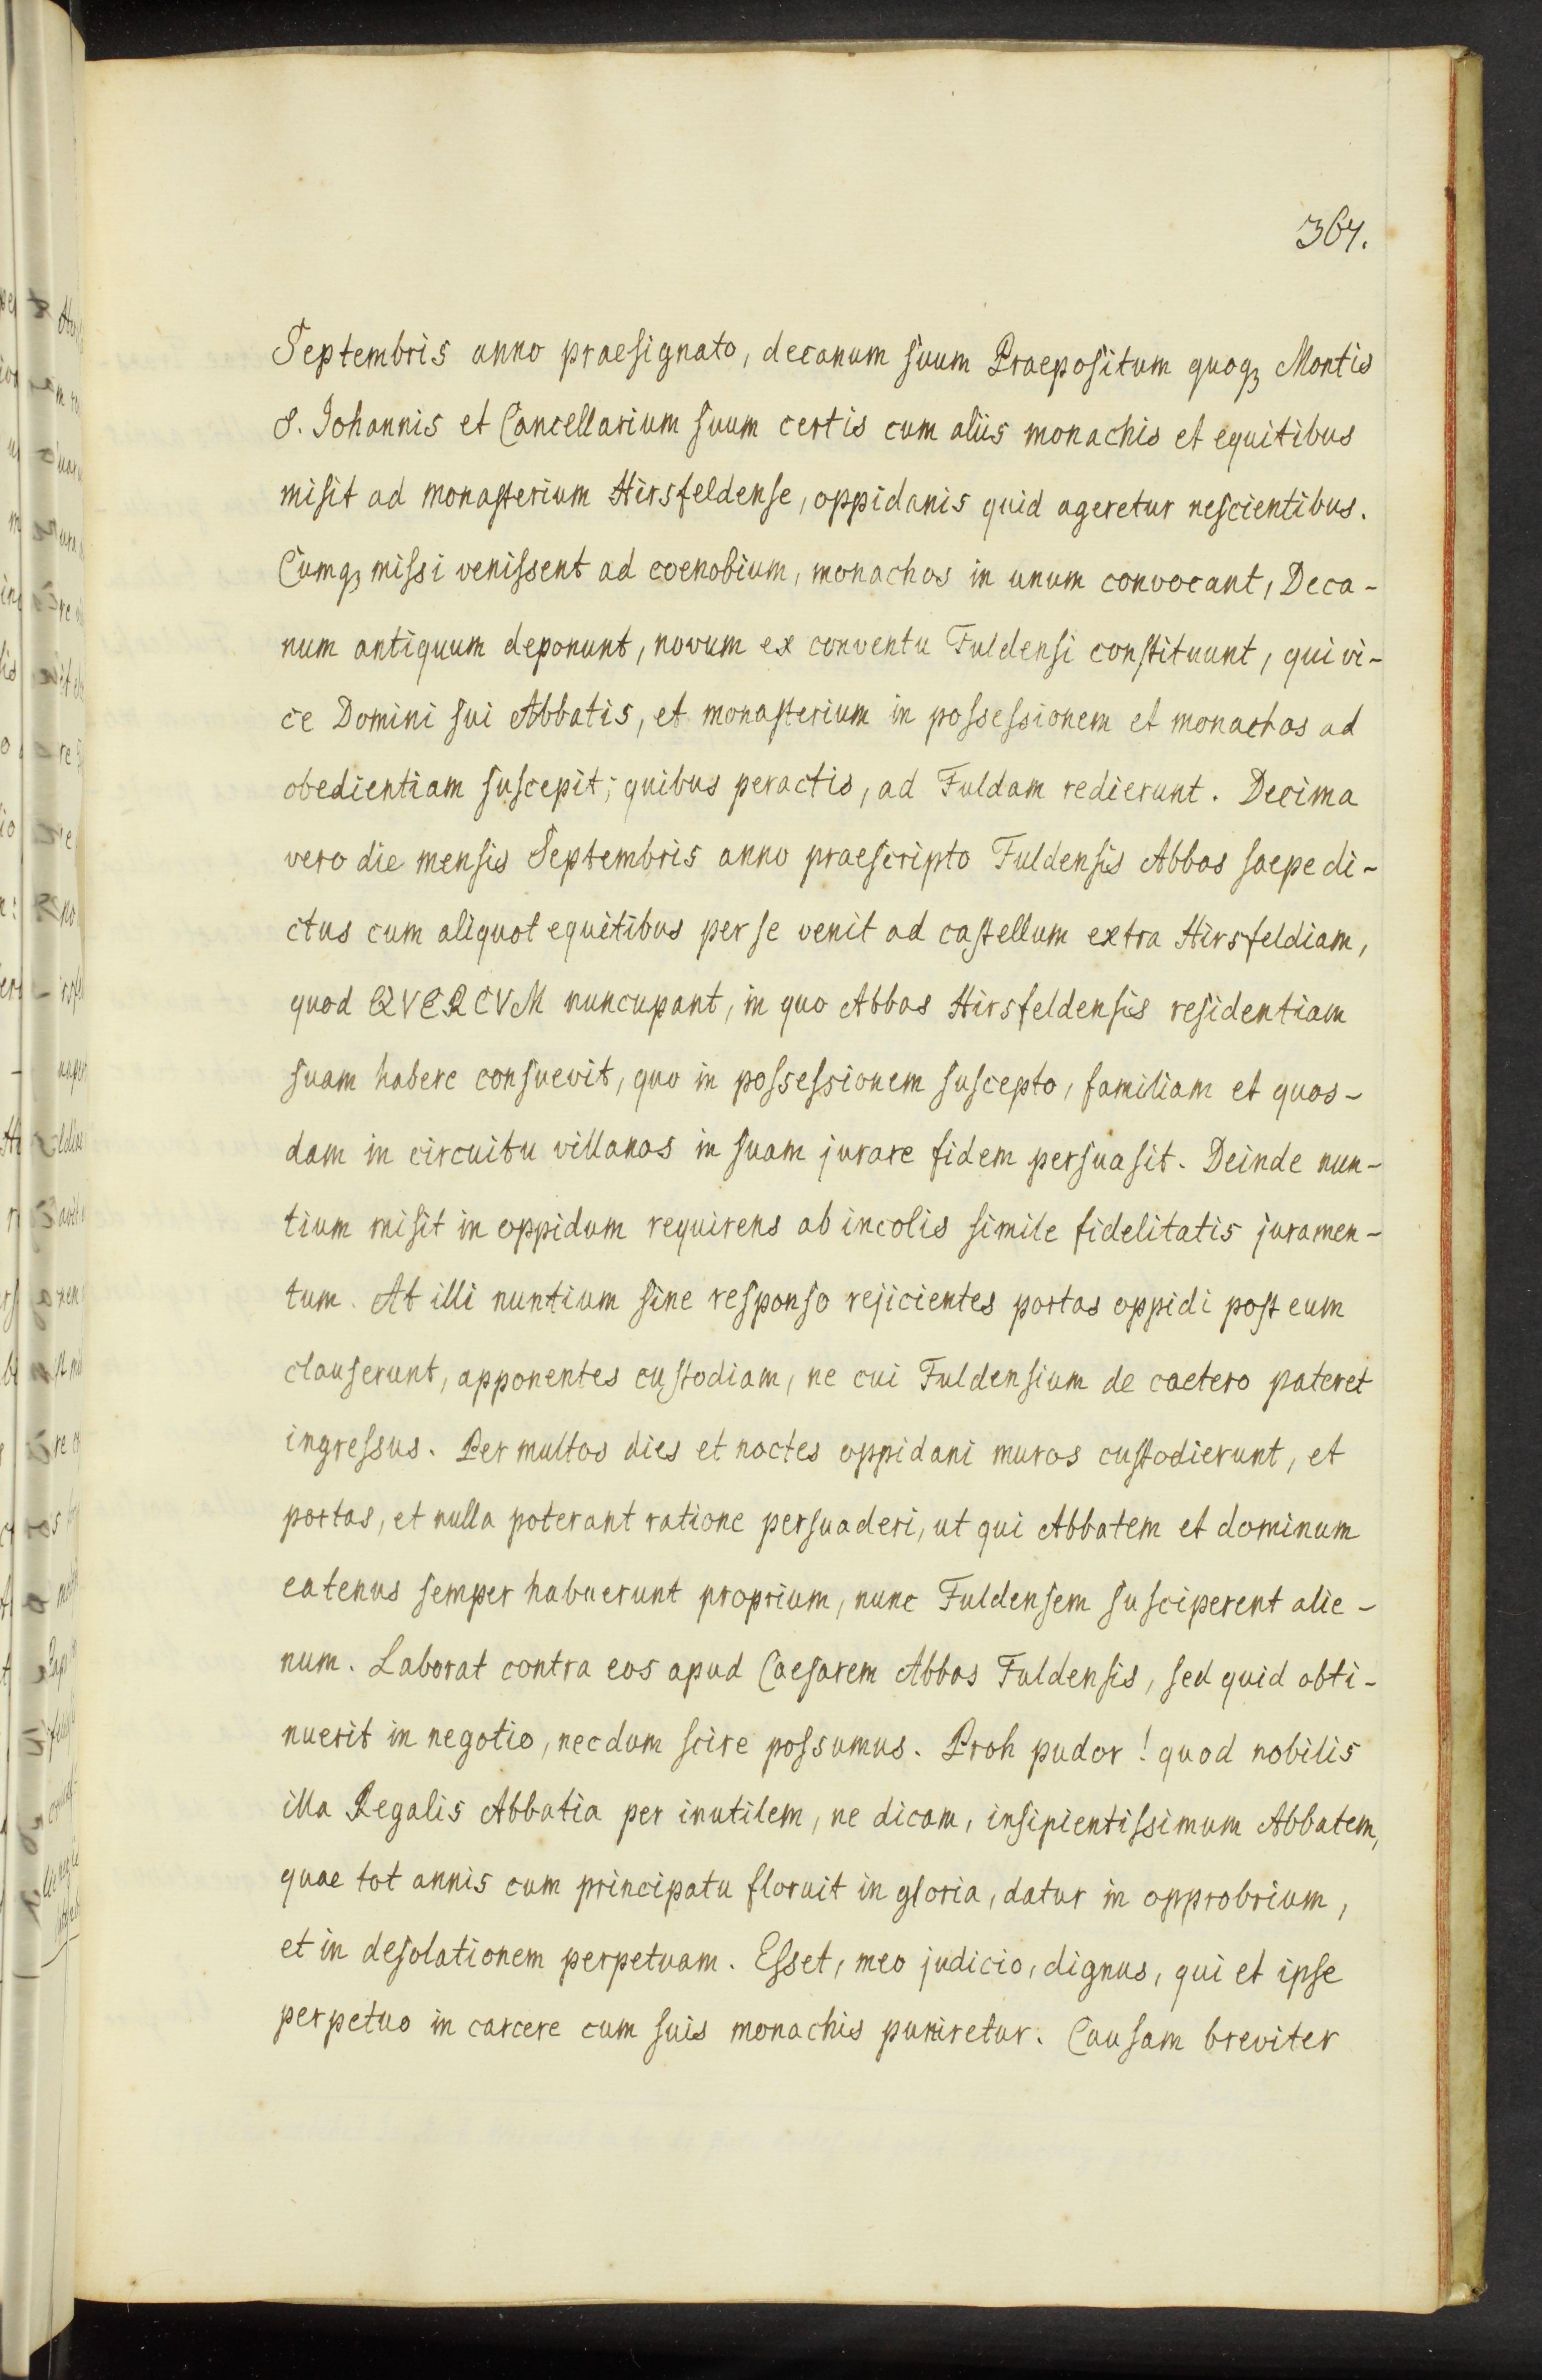 367.
Septembris anno praesignato, decanum suum Praepositum quoqꝫ Montis
S. Johannis et Cancellarium suum certis cum aliis monachis et equitibus
misit ad monasterium Hirsfeldense, oppidanis quid ageretur nescientibus.
Cumqꝫ missi venissent ad coenobium, monachos in unum convocant, Deca-
num antiquum deponunt, novum ex conventu Fuldensi constituunt, qui vi-
ce Domini sui Abbatis, et monasterium in possessionem et monachos ad
obedientiam suscepit; quibus peractis, ad Fuldam redierunt. Decima
vero die mensis Septembris anno praescripto Fuldensis Abbas saepe di-
ctus cum aliquot equitibus per se venit ad castellum extra Hirsfeldiam,
quod QVERCVM nuncupant, in quo Abbas Hirsfeldensis residentiam
suam habere consuevit, quo in possessionem suscepto, familiam et quos-
dam in circuitu villanos in suam jurare fidem persuasit. Deinde nun-
tium misit in oppidum requirens ab incolis simile fidelitatis juramen-
tum. At illi nuntium sine responso rejicientes portas oppidi post eum
clauserunt, apponentes custodiam, ne cui Fuldensium de caetero pateret
ingressus. Per multos dies et noctes oppidani muros custodierunt, et
portas, et nulla poterant ratione persuaderi, ut qui Abbatem et dominum
eatenus semper habuerunt proprium, nunc Fuldensem susciperent alie-
num. Laborat contra eos apud Caesarem Abbas Fuldensis, sed quid obti-
nuerit in negotio, necdum scire possumus. Proh pudor! quod nobilis
illa Regalis Abbatia per inutilem, ne dicam, insipientissimum Abbatem,
quae tot annis cum principatu floruit in gloria, datur in opprobrium,
et in desolationem perpetuam. Esset, meo judicio, dignus, qui et ipse
perpetuo in carcere cum suis monachis puniretur. Causam breviter